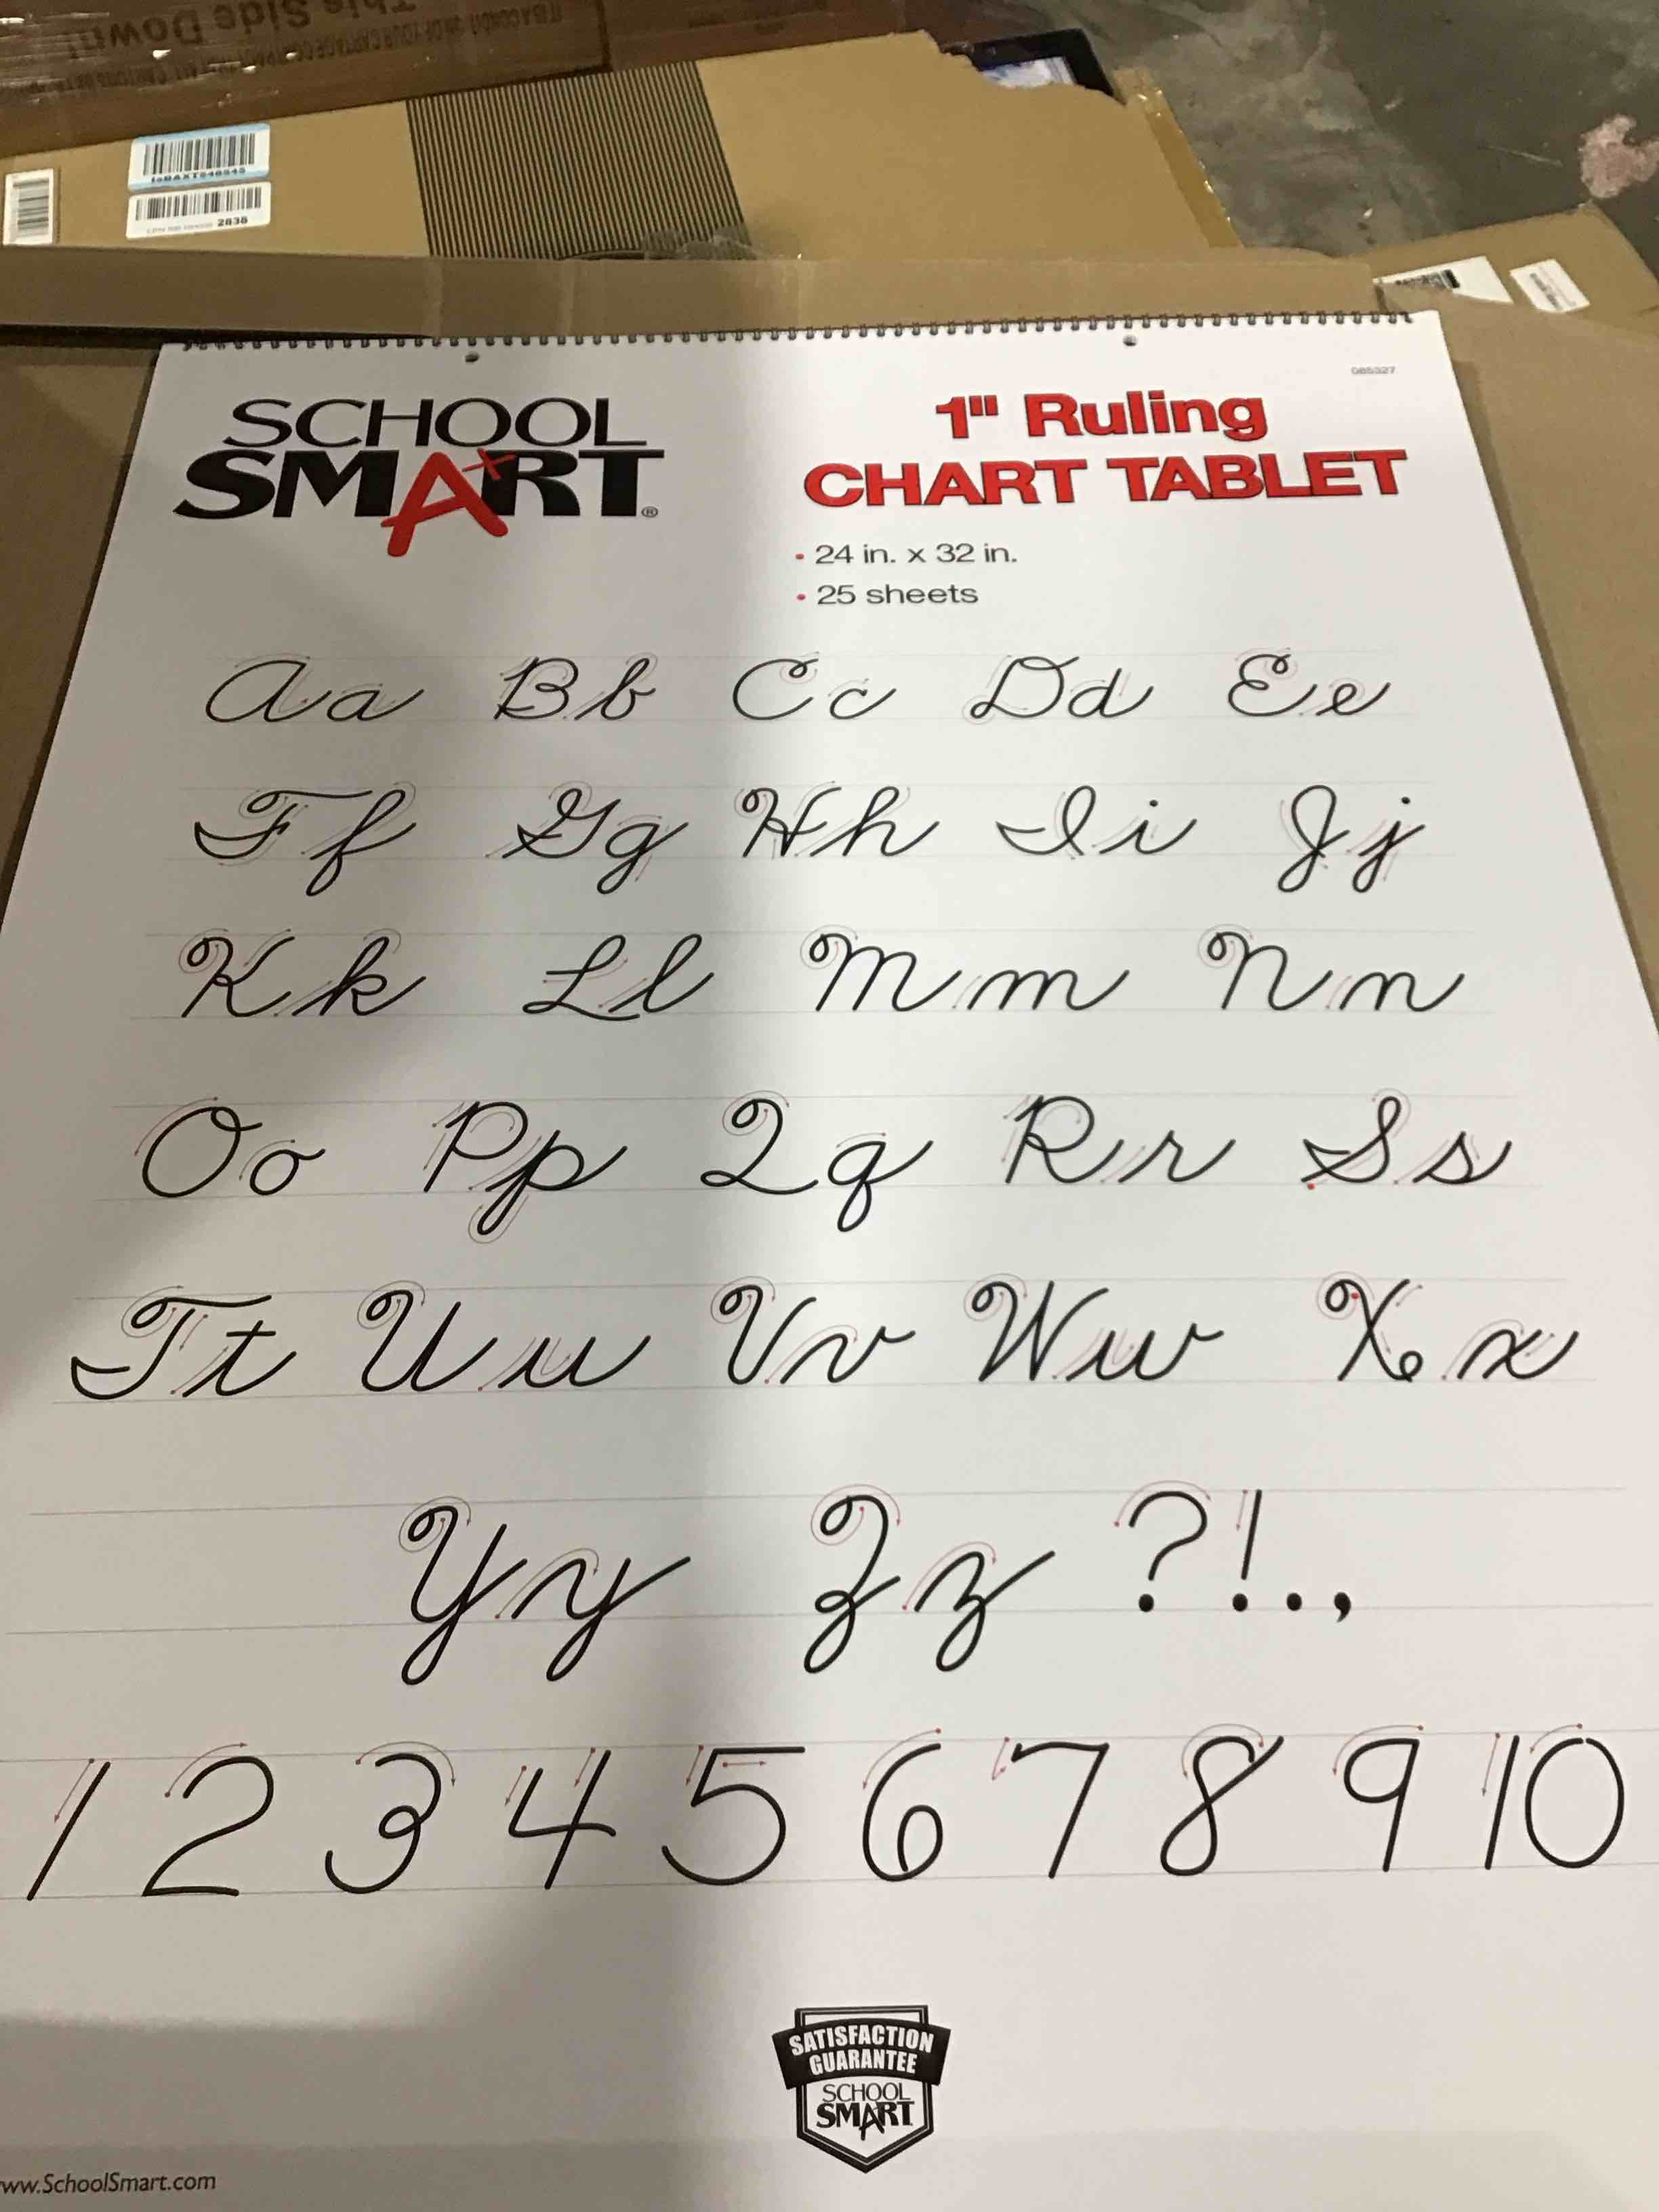 This Side Down!
2838
085327
SCHOOL
SMART®
1" Ruling
CHART TABLET
• 24 in. x 32 in.
• 25 sheets
Aa Bb Cc Dd Ee
Ff Gg Hh Ii Jj
Kk Ll Mm Nn
Oo Pp Qq Rr Ss
Tt Uu Vv Ww Xx
Yy Zz ?!.,
1 2 3 4 5 6 7 8 9 10
SATISFACTION
GUARANTEE
SCHOOL
SMART
ww.SchoolSmart.com